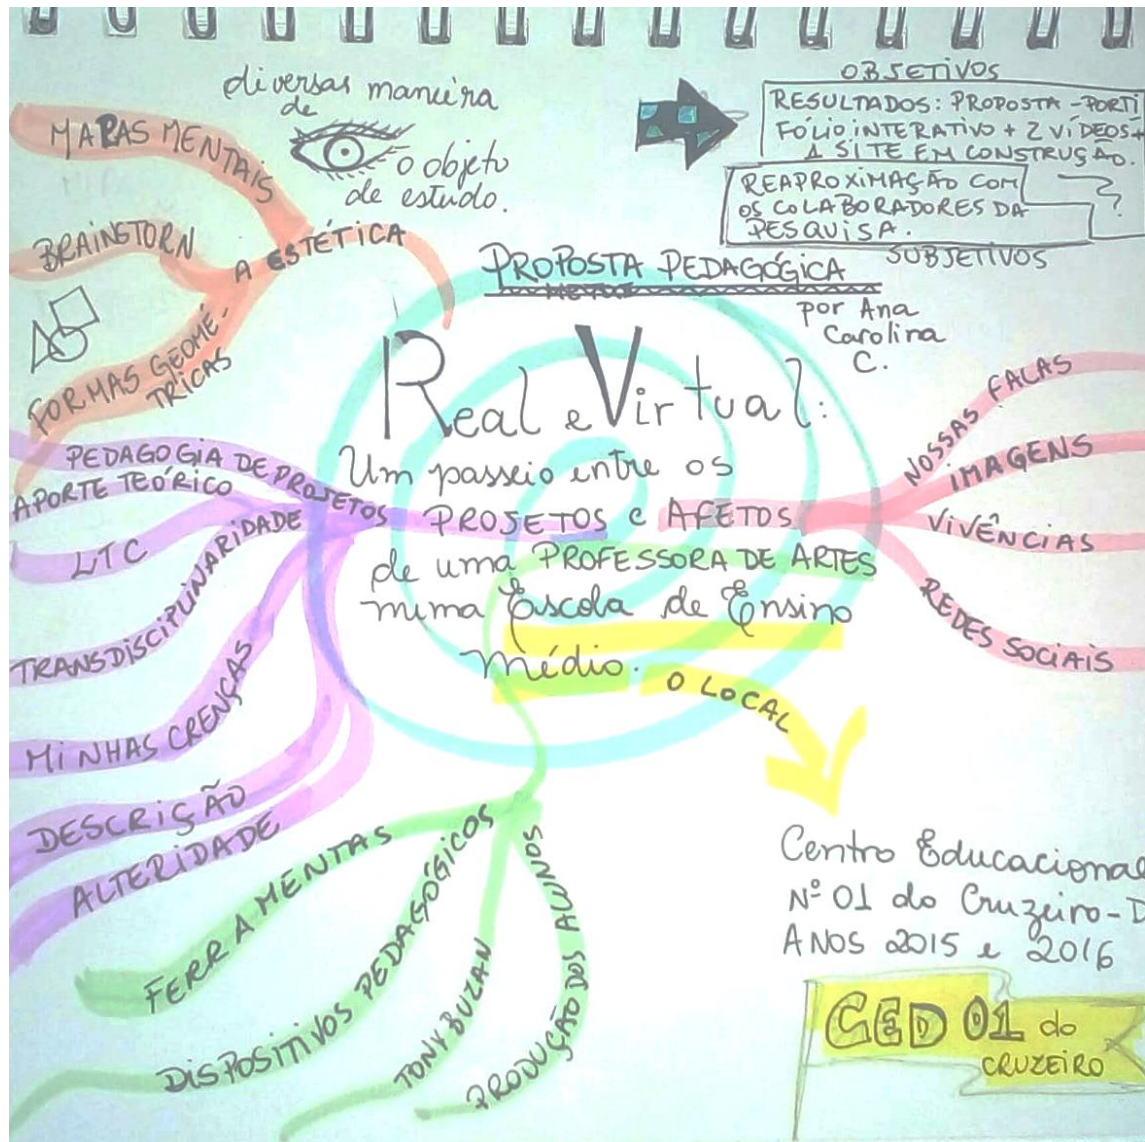 diversas maneira
de
o objeto
de estudo.
OBJETIVOS
RESULTADOS: PROPOSTA - PORTI
FÓLIO INTERATIVO + 2 VÍDEOS +
1 SITE EM CONSTRUÇÃO.
REAPROXIMAÇÃO COM
OS COLABORADORES DA
PESQUISA.
?
SUBJETIVOS
MAPAS MENTAIS
BRAINSTORN
A ESTÉTICA
FORMAS GEOMÉ-
TRICAS
PROPOSTA PEDAGÓGICA
por Ana
Carolina
C.
Real e Virtual:
Um passeio entre os
PROJETOS e AFETOS
de uma PROFESSORA DE ARTES
numa Escola de Ensino
Médio.
O LOCAL
NOSSAS FALAS
IMAGENS
VIVÊNCIAS
REDES SOCIAIS
PEDAGOGIA DE PROJETOS
APORTE TEÓRICO
LTC
TRANSDISCIPLINARIDADE
MINHAS CRENÇAS
DESCRIÇÃO
ALTERIDADE
FERRAMENTAS
DISPOSITIVOS PEDAGÓGICOS
TONY BUZAN
PRODUÇÃO DOS ALUNOS
Centro Educacional
Nº 01 do Cruzeiro - D
ANOS 2015 e 2016
CED 01 do
CRUZEIRO